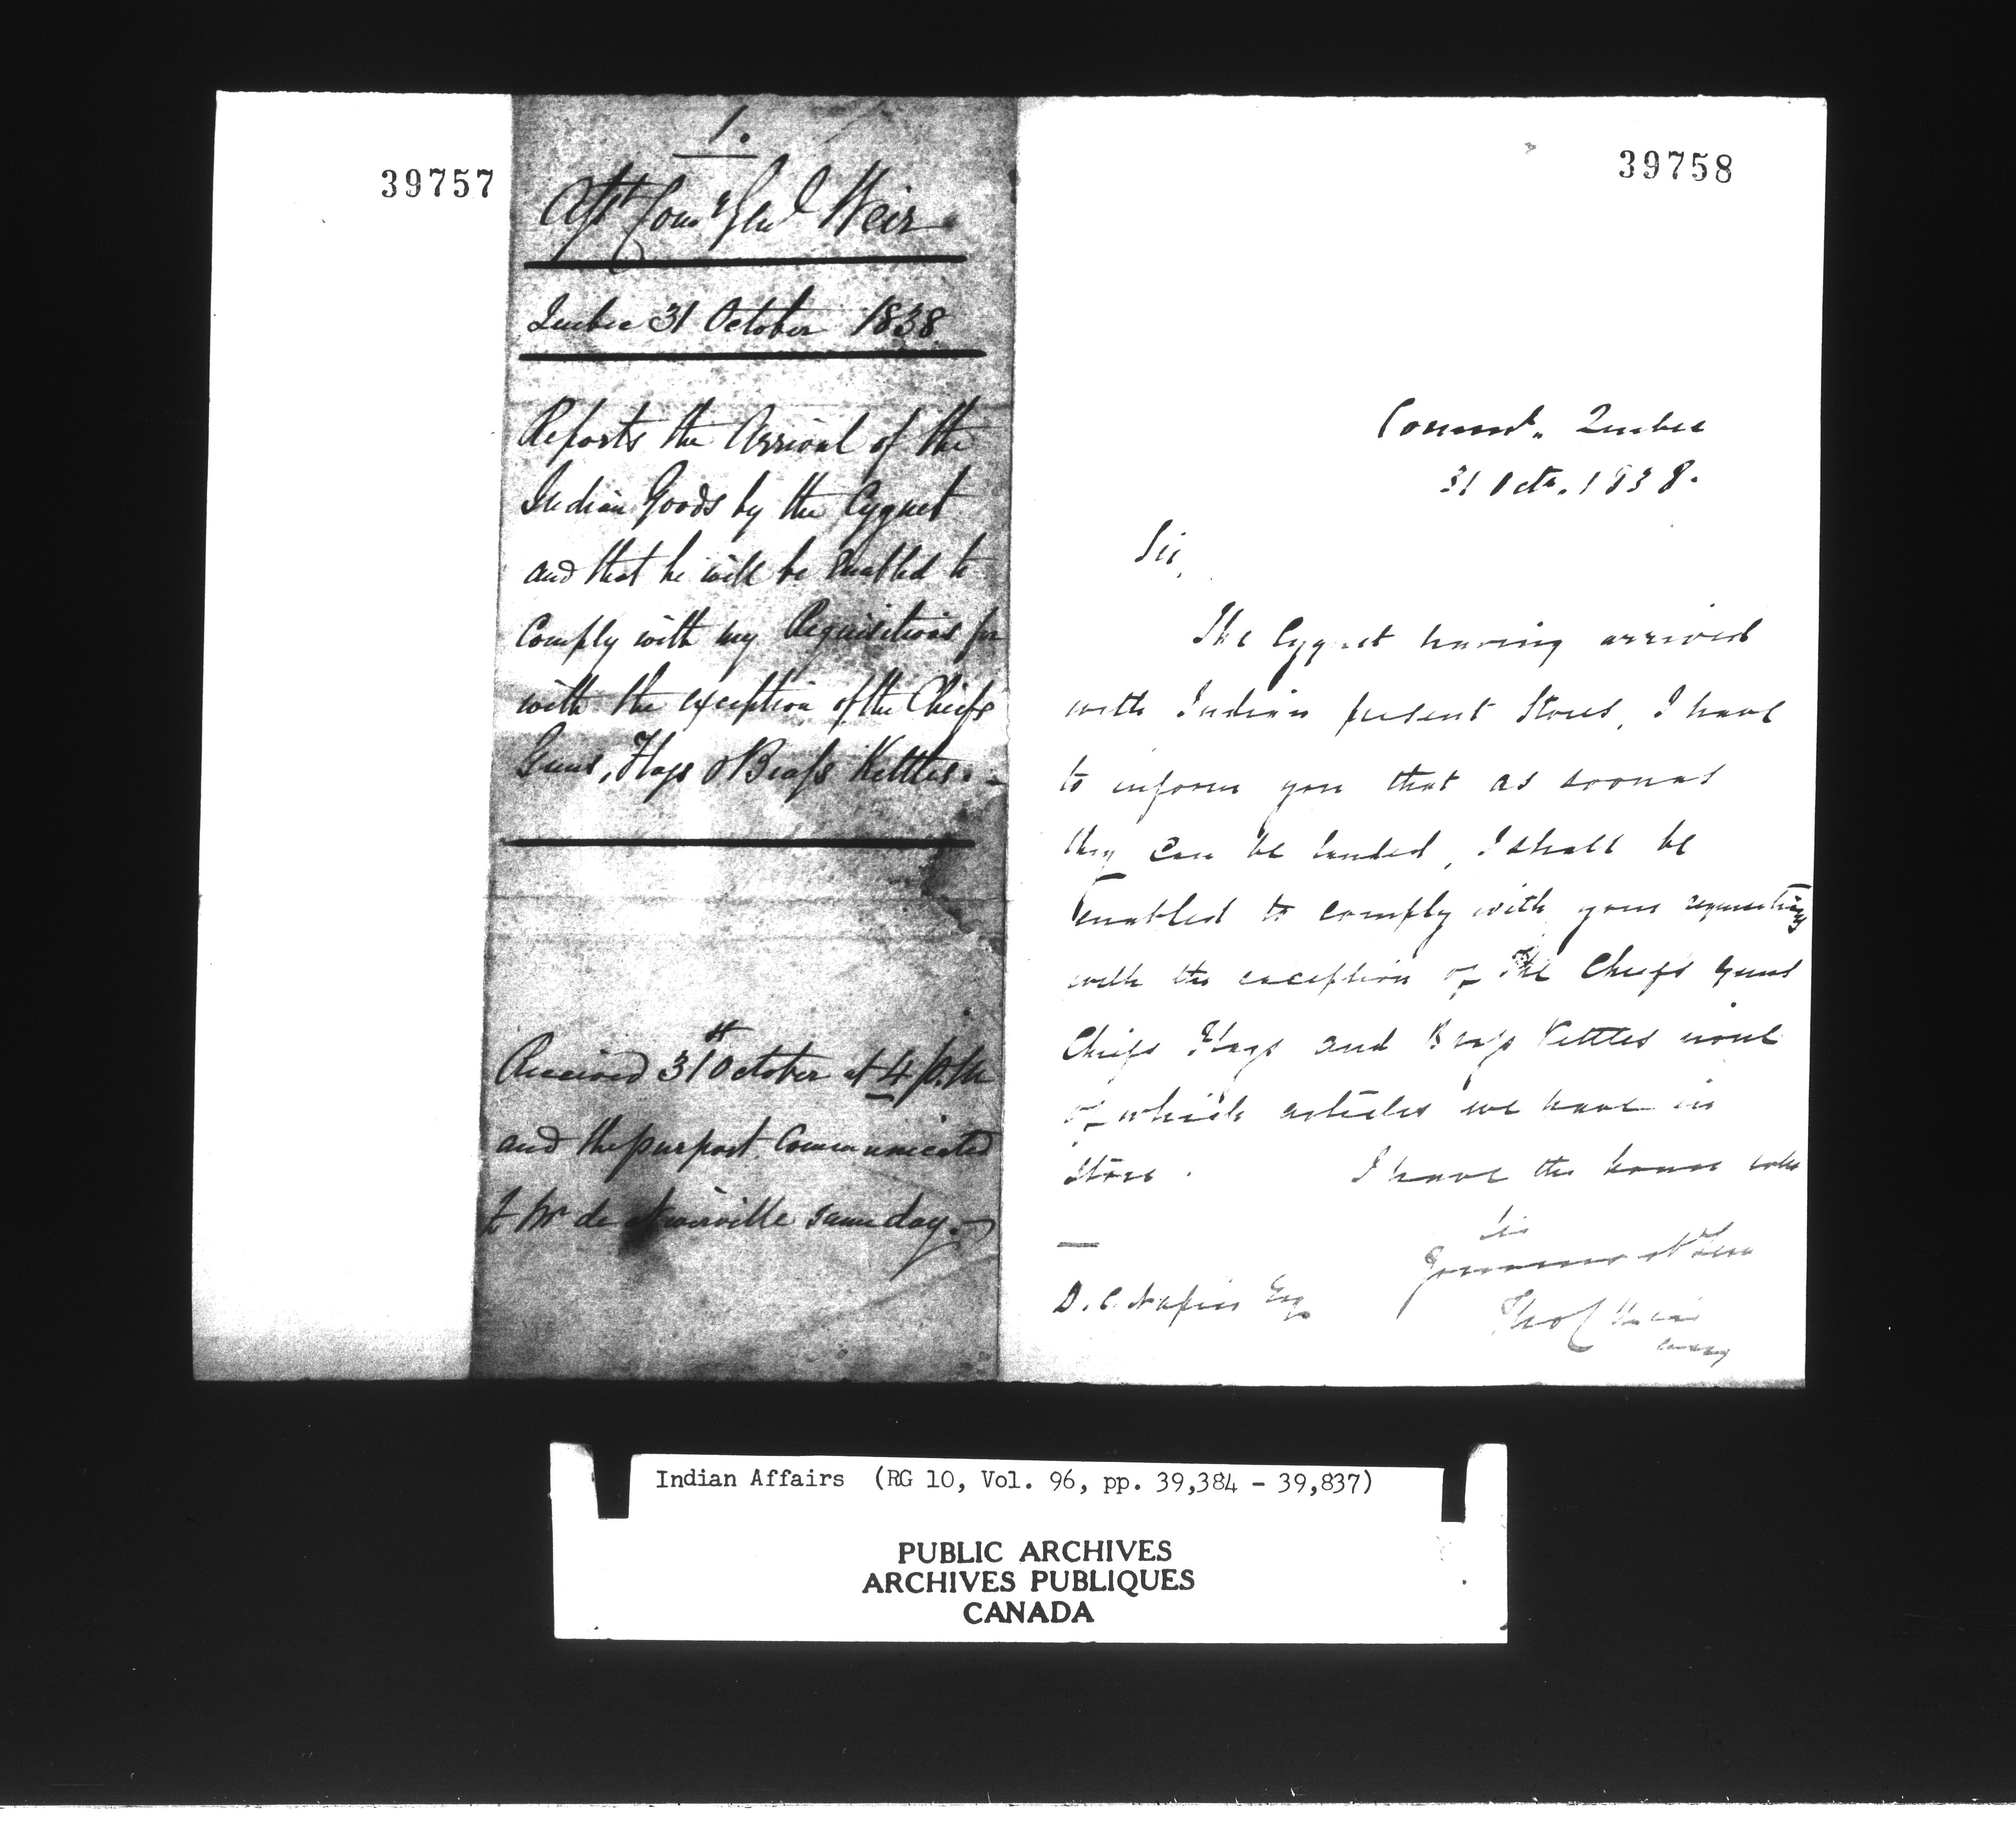 39757
1.
Asst Comy Genl Weir
Quebec 31 October 1838
Reports the Arrival of the
Indian Goods by the Cygnet
and that he will be enabled to
Comply with my Requisitions for
with the exception of the Chiefs
Guns, Flags & Brass Kettles.
Received 31st October at 4 p.m
and the purport Communicated
to Mr de Niverville same day.
39758
Commt. Quebec
31 Octr. 1838.
Sir,
The Cygnet having arrived
with Indian present Stores, I have
to inform you that as soon as
they can be landed, I shall be
enabled to comply with your requisitions
with the exception of the Chiefs guns
Chiefs Flags and Brass Kettles none
of which articles we have in
Store. I have the honor to be
Sir
Your
D. C. Napier Esq
Weir
Indian Affairs (RG 10, Vol. 96, pp. 39,384 - 39,837)
PUBLIC ARCHIVES
ARCHIVES PUBLIQUES
CANADA